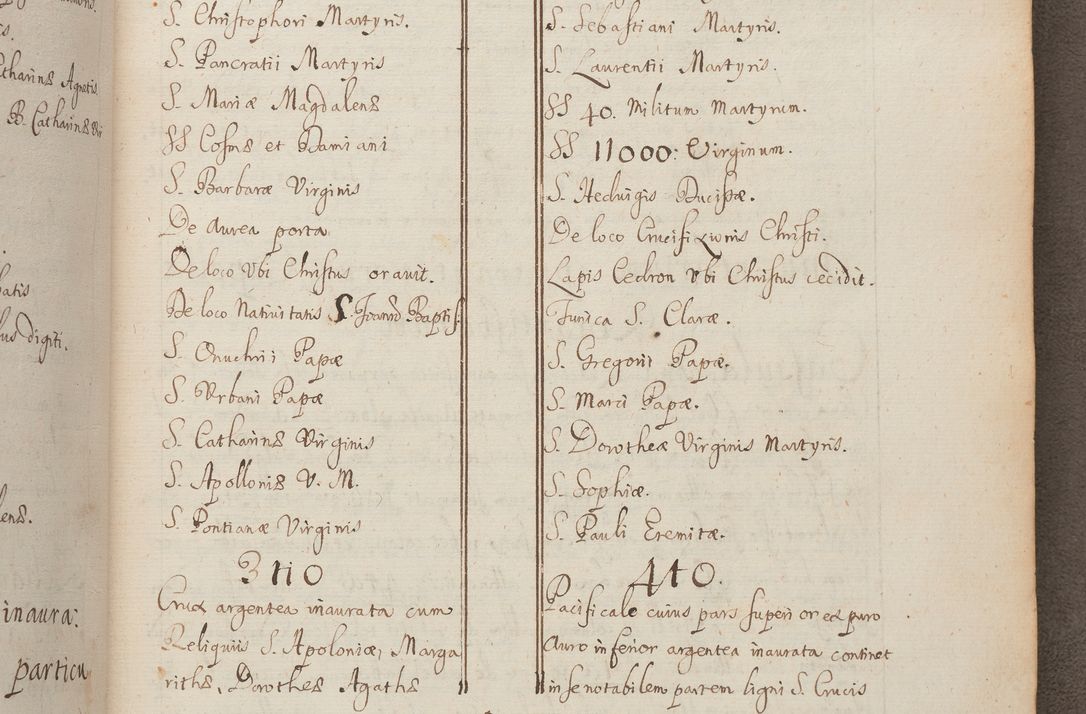 S. Christophori Martyris.
S. Pancratii Martyris
S. Mariæ Magdalenę
SS Cosmę et Damiani
S. Barbaræ Virginis
De aurea porta
De loco Vbi Christus oravit.
De loco Nativitatis S. Joannis Baptis.
S. Onuchrii Papæ
S. Vrbani Papæ
S. Catharinę Virginis
S. Apollonię V. M.
S. Pontianæ Virginis
3tio
Crux argentea inaurata cum
Reliquiis S. Apoloniæ, Marga
rithę, Dorotheę Agathę
S. Sebastiani Martyris.
S. Laurentii Martyris.
SS 40. Militum Martyrum.
SS 11000: Virginum.
S. Hedvigis Ducissæ.
De loco Crucifixionis Christi.
Lapis Cedron Vbi Christus cecidit.
Tunica S. Claræ.
S. Gregorii Papæ.
S. Marci Papæ.
S. Dorotheæ Virginis Martyris.
S. Sophiæ.
S. Pauli Eremitæ.
4to.
Pacificale cuius pars superior ex puro
Auro inferior argentea inaurata continet
in se notabilem partem ligni S. Crucis
tharinę Agnetis
B. Catharinę
atis
digiti.
lenę.
inaura:
particu